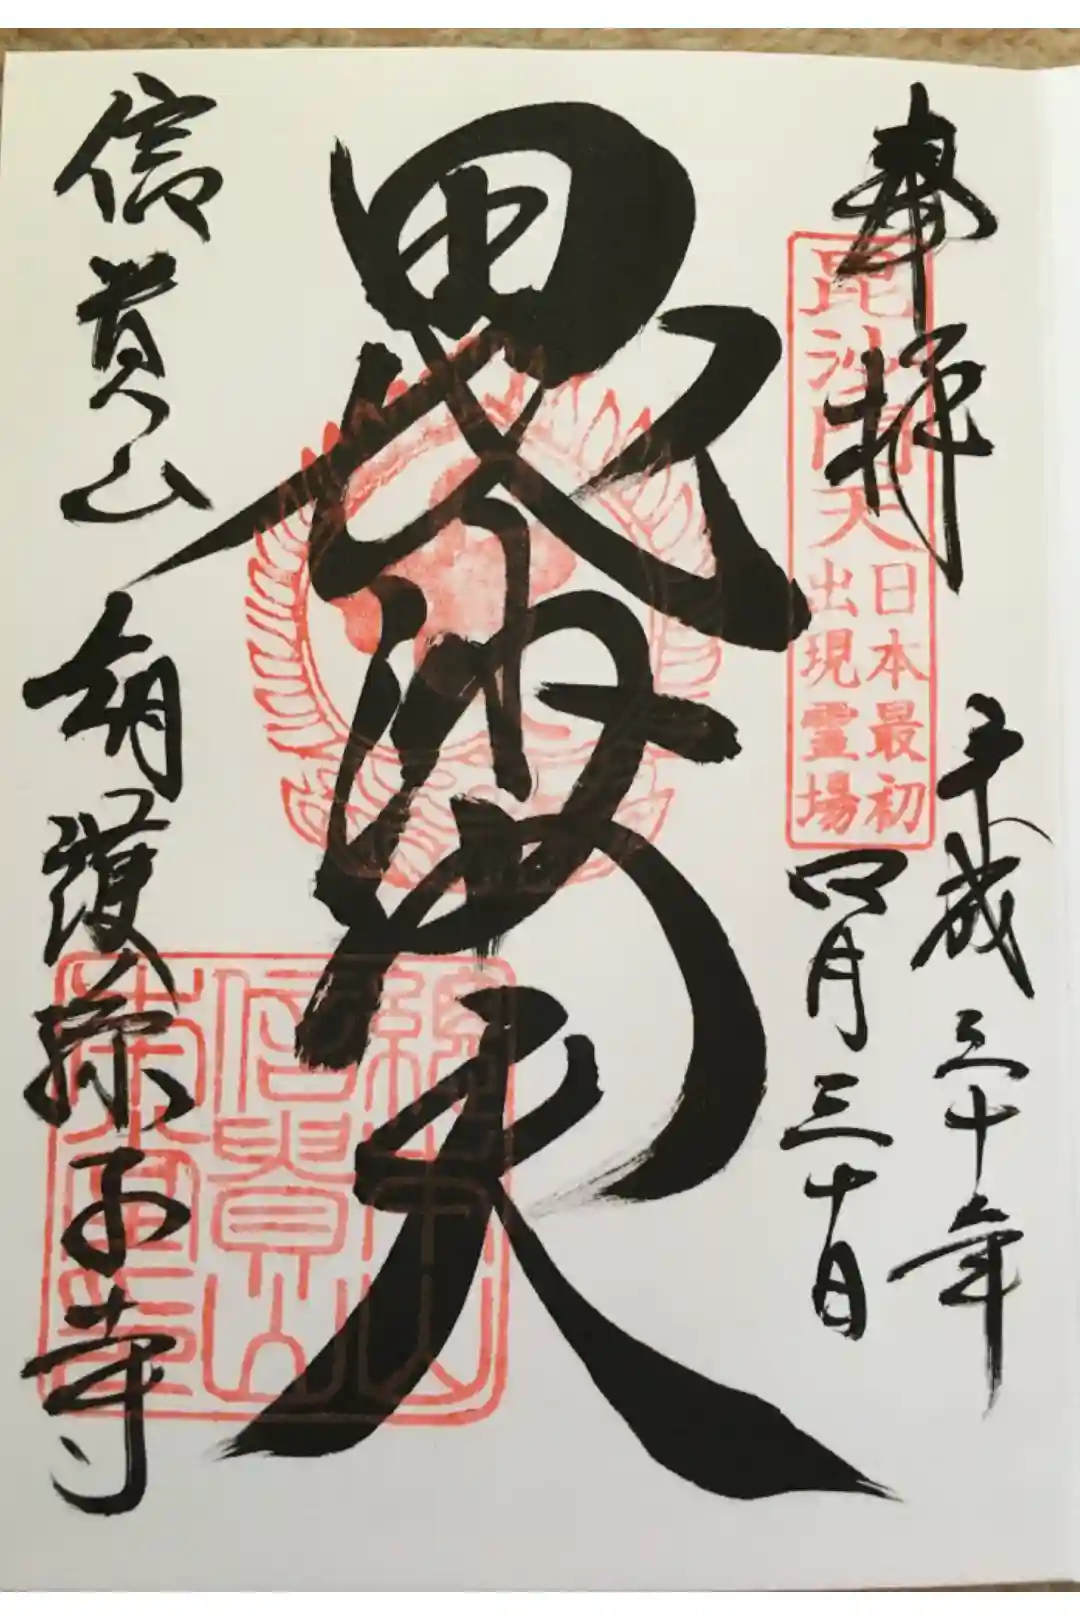 奉拝
毘沙門天
日本最初
出現霊場
平成三十年
四月三十日
毘沙門天
信貴山
朝護孫子寺
信貴山